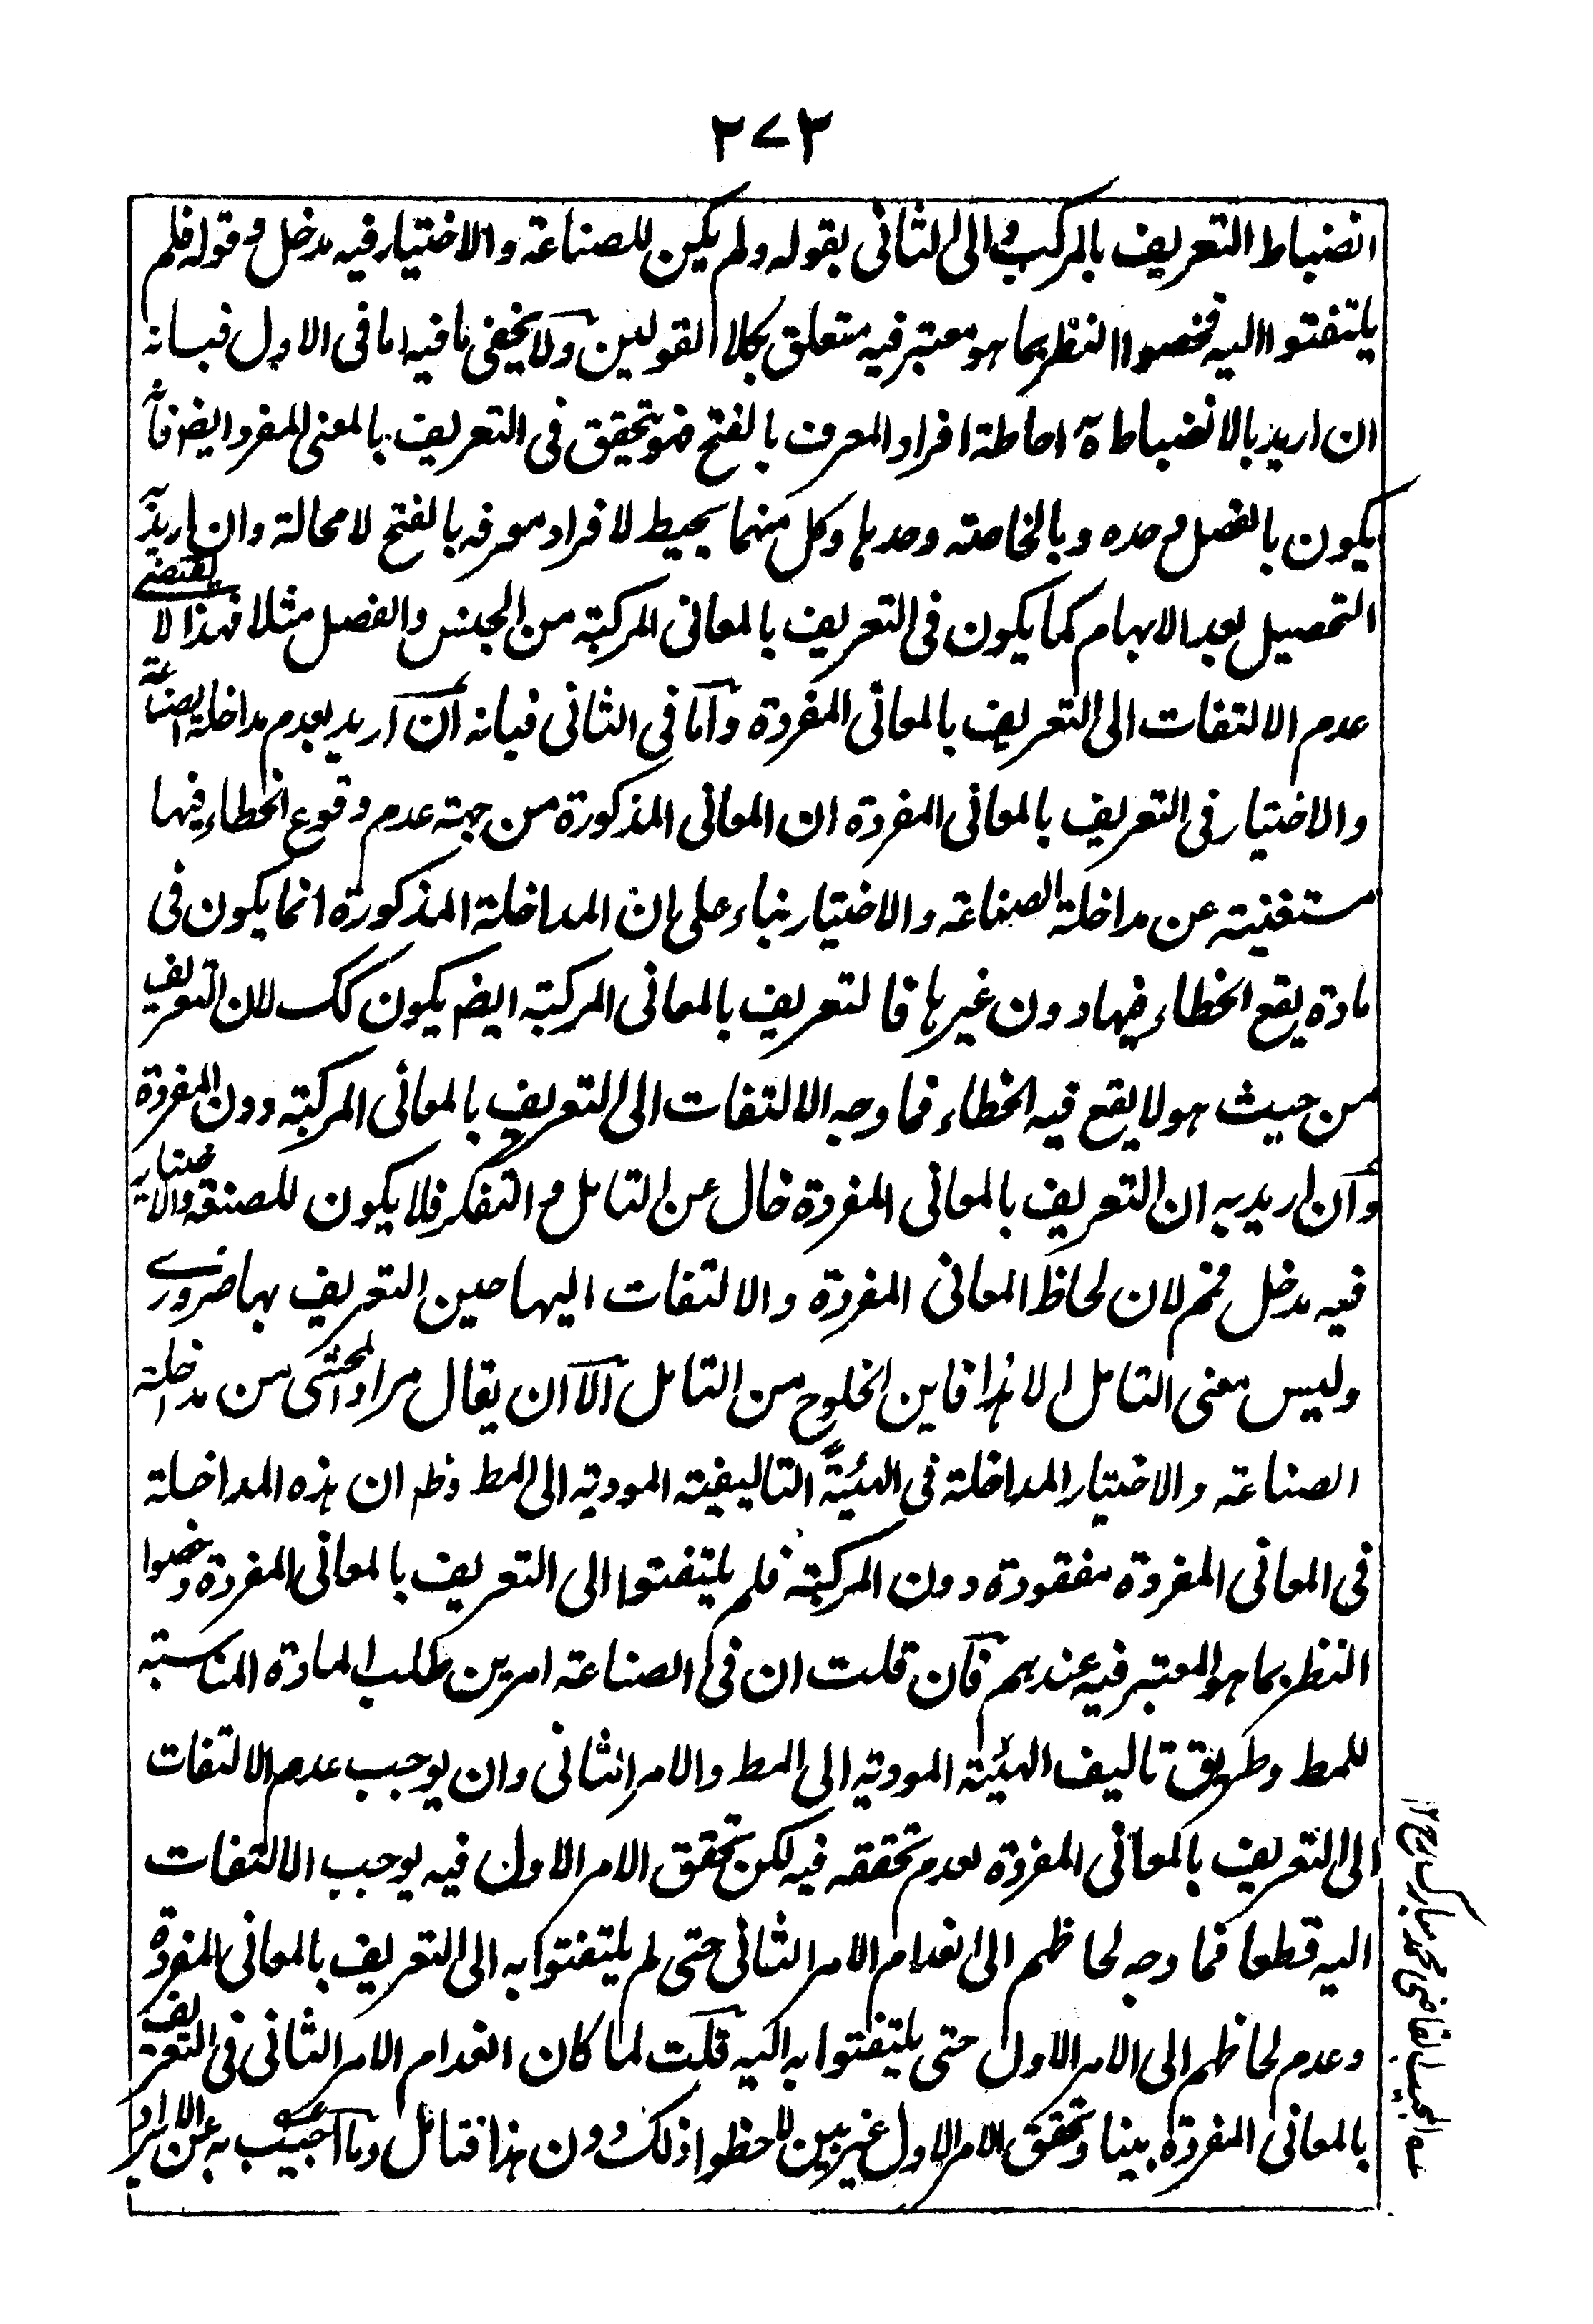 ٣٧٣
انضباط التعريف بالمركب والى الثانى بقوله ولم يكن للصناعة والاختيار فيه مدخل وقوله فلم
يلتفتوا اليه فخصوا النظر بما هو معتبر فيه متعلق بكلا القولين ولا يخفى ما فيه اما فى الاول فبانه
ان اريد بالانضباط احاطة افراد المعرف بالفتح فهو تحقيق فى التعريف بالمعنى المفرد ايضا فانه
يكون بالفصل وحده وبالخاصة وحدها وكل منهما يحيط لافراد معرفه بالفتح لا محالة وان اريد به
التحصيل بعد الابهام كما يكون فى التعريف بالمعانى المركبة من الجنس والفصل مثلا فهذا لا يقتضى
عدم الالتفات الى التعريف بالمعانى المفردة واما فى الثانى فبانه ان اريد بعدم مداخلة الصناعة
والاختيار فى التعريف بالمعانى المفردة ان المعانى المذكورة من جهة عدم وقوع الخطاء فيها
مستغنية عن مداخلة الصناعة والاختيار بناء على ان المداخلة المذكورة انما يكون فى
مادة يقع الخطاء فيها دون غيرها فالتعريف بالمعانى المركبة ايضا يكون كك لان التعريف
من حيث هو لا يقع فيه الخطاء فما وجه الالتفات الى التعريف بالمعانى المركبة دون المفردة
وان اريد به ان التعريف بالمعانى المفردة خال عن التامل والتفكر فلا يكون للصنعة والاختيار
فيه مدخل فمم لان لحاظ المعانى المفردة والالتفات اليها حين التعريف بها ضرورى
وليس معنى التامل الا هذا فاين الخلوح من التامل الا ان يقال مراد المحشى من مداخلة
الصناعة والاختيار المداخلة فى الهيئة التاليفية المودية الى المط وظم ان هذه المداخلة
فى المعانى المفردة مفقودة دون المركبة فلم يلتفتوا الى التعريف بالمعانى المفردة وخصوا
النظر بما هو المعتبر فيه عندهم فان قلت ان فى الصناعة امرين طلب المادة المناسبة
للمط وطريق تاليف الهيئة المودية الى المط والامر الثانى وان يوجب عدم الالتفات
الى التعريف بالمعانى المفردة لعدم تحققه فيه لكن تحقق الامر الاول فيه يوجب الالتفات
اليه قطعا فما وجه لحاظهم الى انعدام الامر الثانى حتى لم يلتفتوا به الى التعريف بالمعانى المفردة
وعدم لحاظهم الى الامر الاول حتى يلتفتوا به اليه قلت لما كان انعدام الامر الثانى فى التعريف
بالمعانى المفردة بينا وتحقق الامر الاول غير بين لاحظوا ذلك دون هذا فتامل وما اجيب به عن الايراد
المجيب القاضى محمد مبارك ١٢